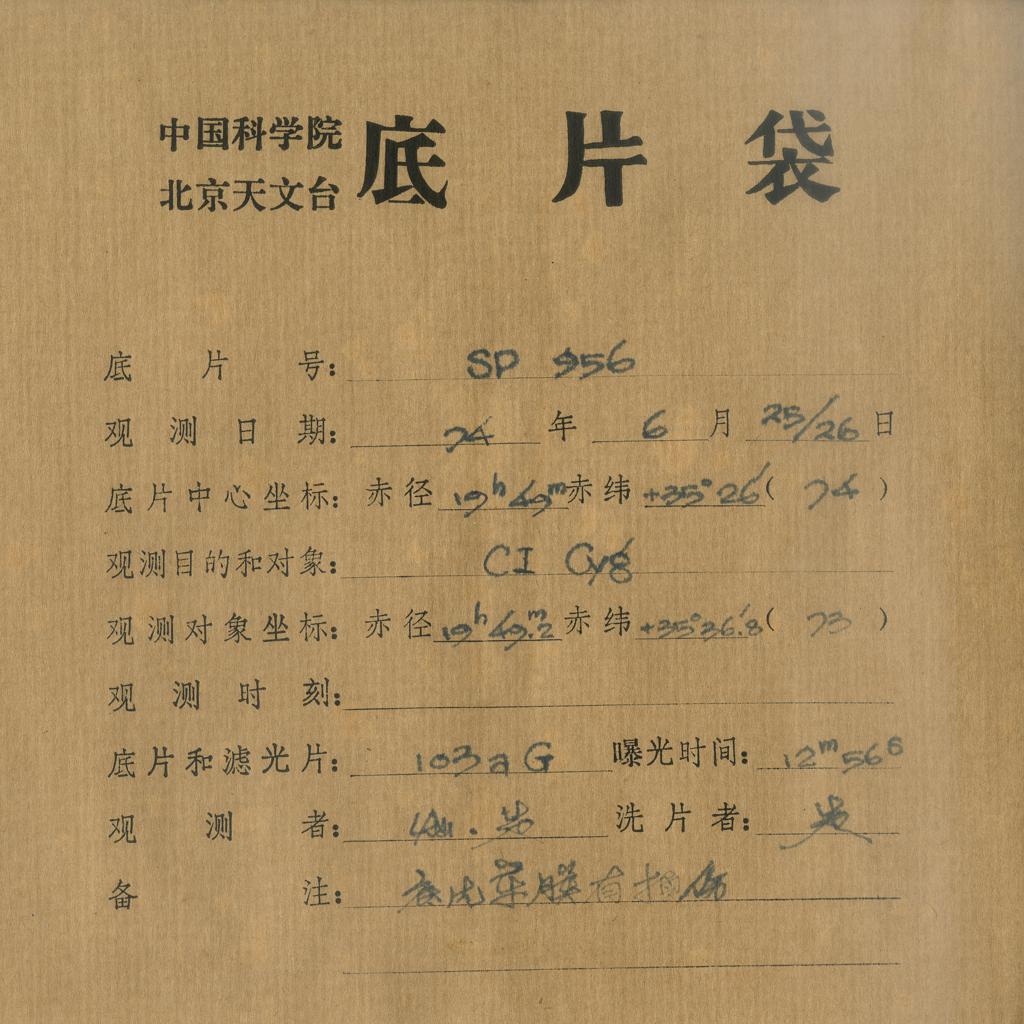 中国科学院
北京天文台
底片袋
底片号: SP 956
观测日期: 74 年 6 月 25/26 日
底片中心坐标: 赤径 19h 49m 赤纬 +35° 26′ ( 74 )
观测目的和对象: CI Cyg
观测对象坐标: 赤径 19h 49m.2 赤纬 +35° 36′.8 ( 73 )
观测时刻:
底片和滤光片: 103a G 曝光时间: 12m 56s
观测者: 洗片者:
备注: 药膜有损伤